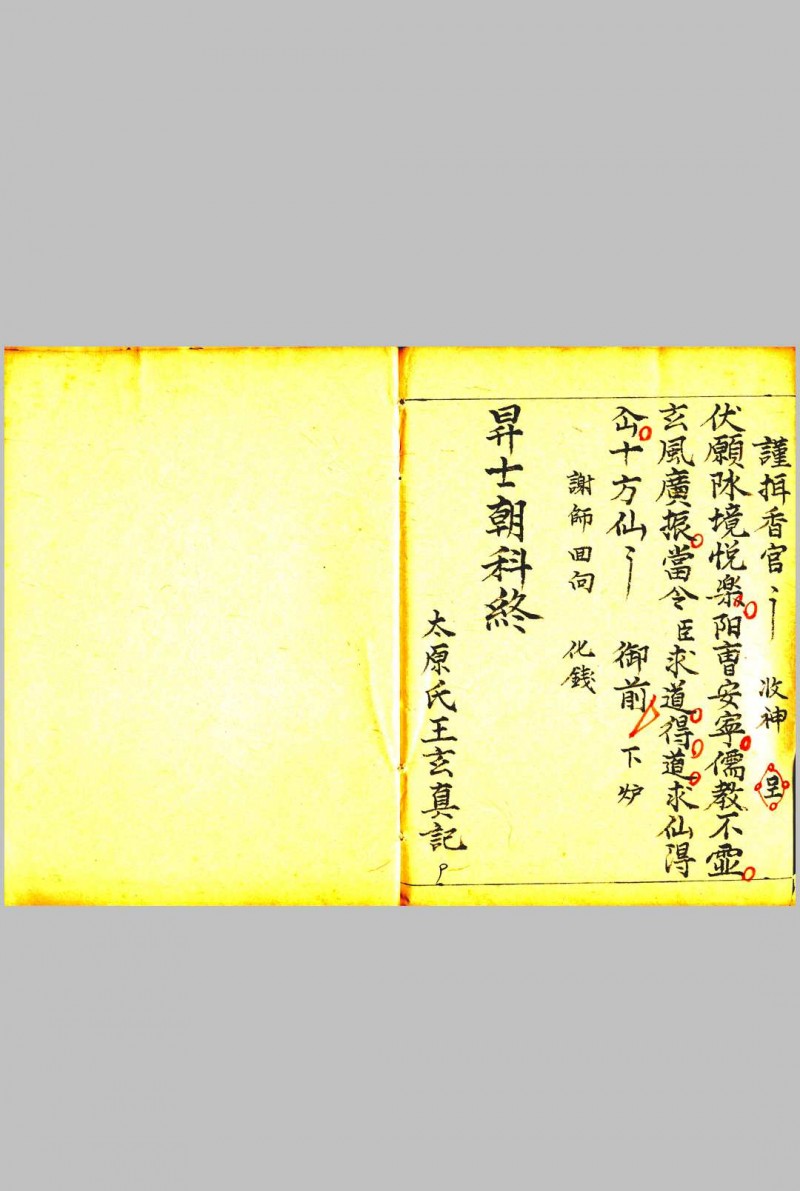 謹揖香官〻 收神 呈
伏願阥境悦楽阳曺安寕儒教不虚
玄風廣振當令臣求道得道求仙得
仚十方仙〻 御前 下炉
謝師回向 化錢
昇士朝科終
太原氏王玄真記